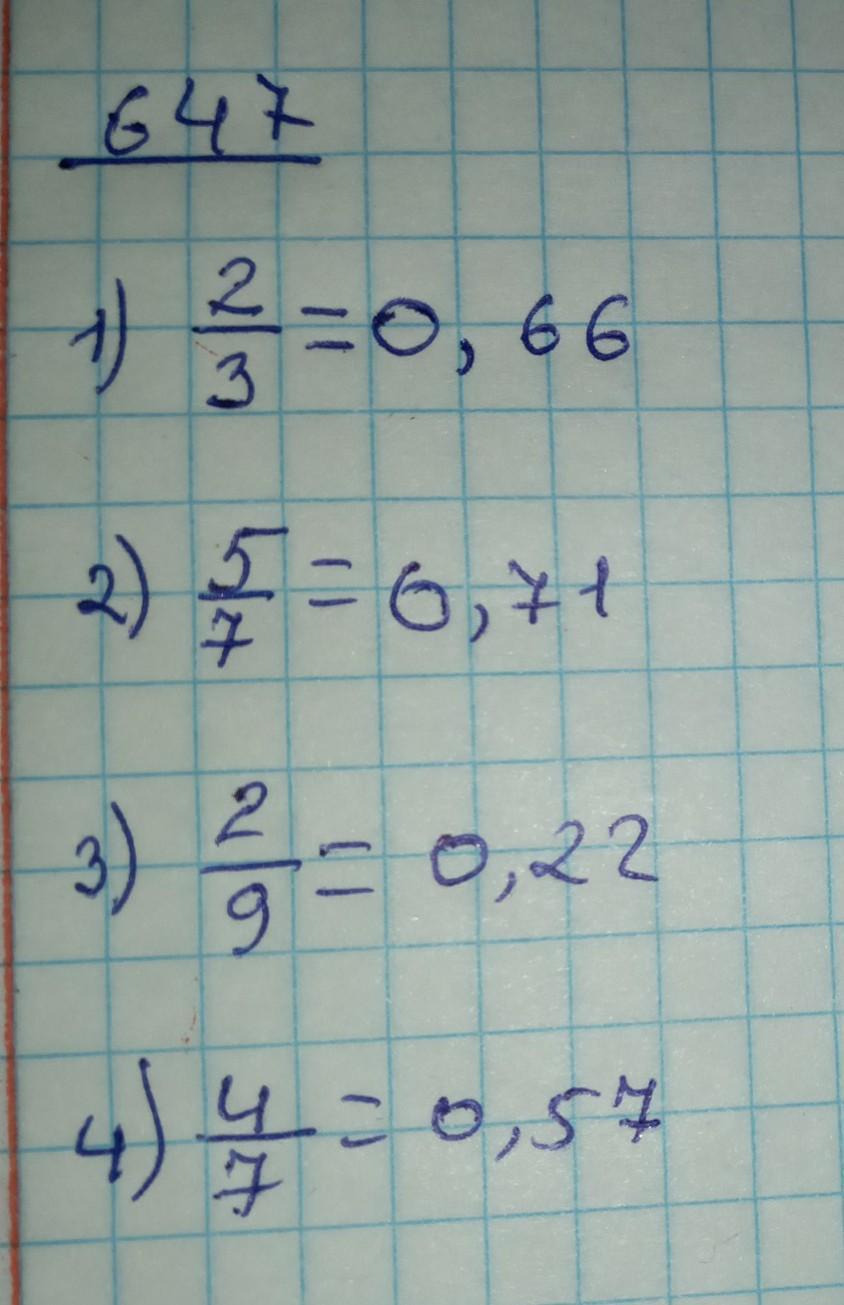 647
1) 2/3 = 0,66
2) 5/7 = 0,71
3) 2/9 = 0,22
4) 4/7 = 0,57